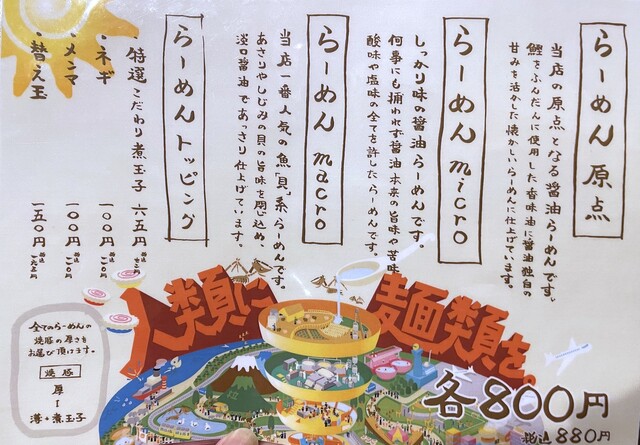 らーめん 原点
当店の原点となる醤油らーめんです。
鰹をふんだんに使用した香味油に醤油独自の
甘みを活かした懐かしいらーめんに仕上げています。
らーめん micro
しっかり味の醤油らーめんです。
何事にも捕われず醤油本来の旨味や苦味
酸味や塩味の全てを許したらーめんです。
らーめん macro
当店一番人気の魚「貝」系らーめんです。
あさりやしじみの貝の旨味を閉じ込め、
淡口醤油であっさり仕上げています。
らーめん トッピング
・特選こだわり煮玉子 六五円
・ネギ 一〇〇円 税込一一〇円
・メンマ 一〇〇円 税込一一〇円
・替え玉 一五〇円 税込一六五円
全てのらーめんの
焼豚の厚さを
お選び頂けます。
焼豚
厚
薄+煮玉子
人類に
麺類を。
各800円
税込880円